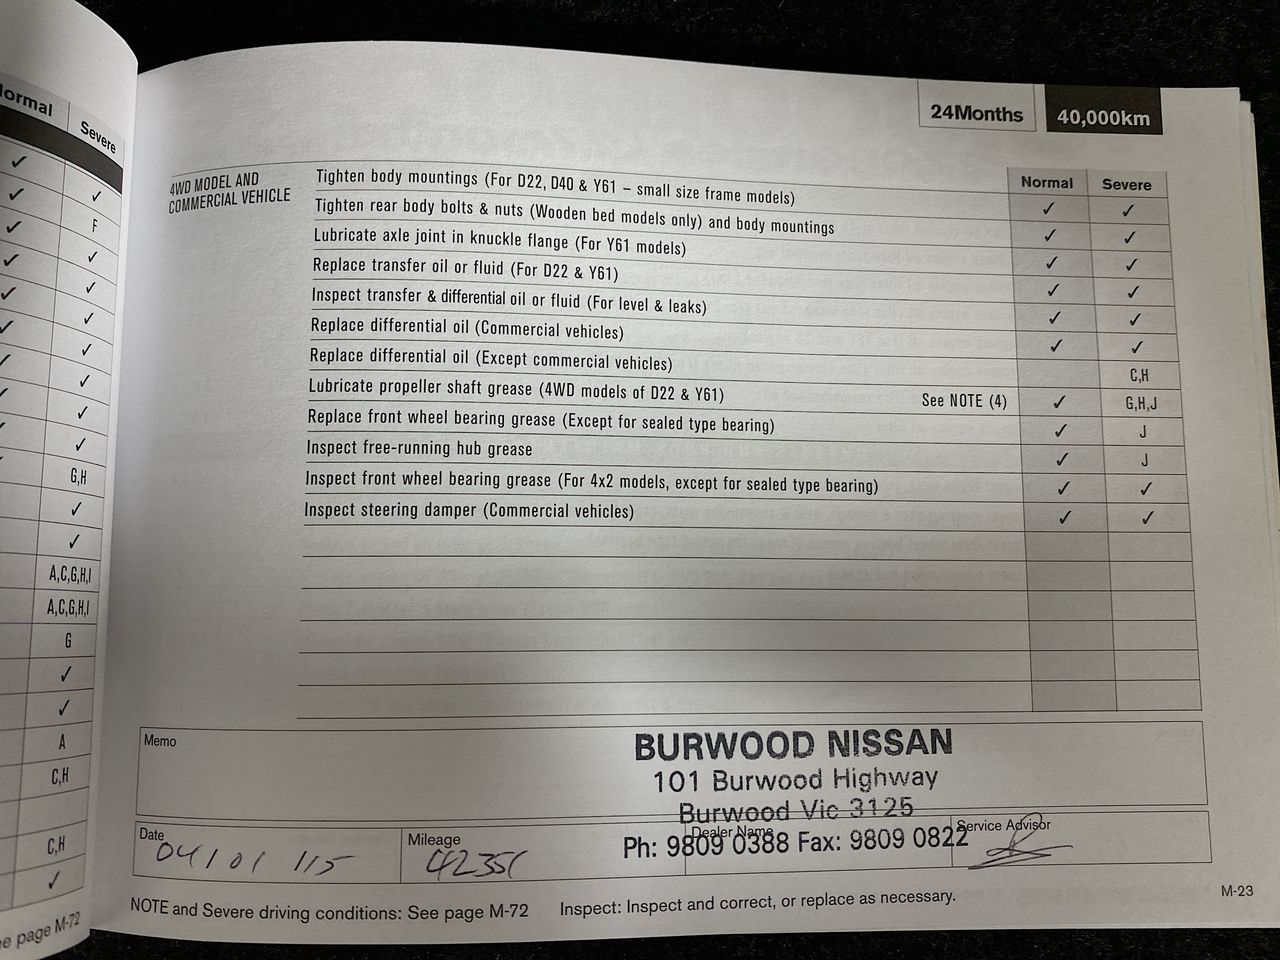 ormal Severe
✓ ✓
✓ F
✓ ✓
✓ ✓
✓ ✓
✓ ✓
✓ ✓
✓ ✓
✓ ✓
G,H
✓
✓
A,C,G,H,I
A,C,G,H,I
G
✓
✓
A
C,H
C,H
✓
e page M-72
24Months 40,000km
4WD MODEL AND
COMMERCIAL VEHICLE
Normal Severe
Tighten body mountings (For D22, D40 & Y61 – small size frame models) ✓ ✓
Tighten rear body bolts & nuts (Wooden bed models only) and body mountings ✓ ✓
Lubricate axle joint in knuckle flange (For Y61 models) ✓ ✓
Replace transfer oil or fluid (For D22 & Y61) ✓ ✓
Inspect transfer & differential oil or fluid (For level & leaks) ✓ ✓
Replace differential oil (Commercial vehicles) ✓ ✓
Replace differential oil (Except commercial vehicles) C,H
Lubricate propeller shaft grease (4WD models of D22 & Y61) See NOTE (4) ✓ G,H,J
Replace front wheel bearing grease (Except for sealed type bearing) ✓ J
Inspect free-running hub grease ✓ J
Inspect front wheel bearing grease (For 4x2 models, except for sealed type bearing) ✓ ✓
Inspect steering damper (Commercial vehicles) ✓ ✓
Memo
BURWOOD NISSAN
101 Burwood Highway
Burwood Vic 3125
Ph: 9809 0388 Fax: 9809 0822
Date 04/01/15
Mileage
Dealer Name
Service Advisor
NOTE and Severe driving conditions: See page M-72 Inspect: Inspect and correct, or replace as necessary.
M-23